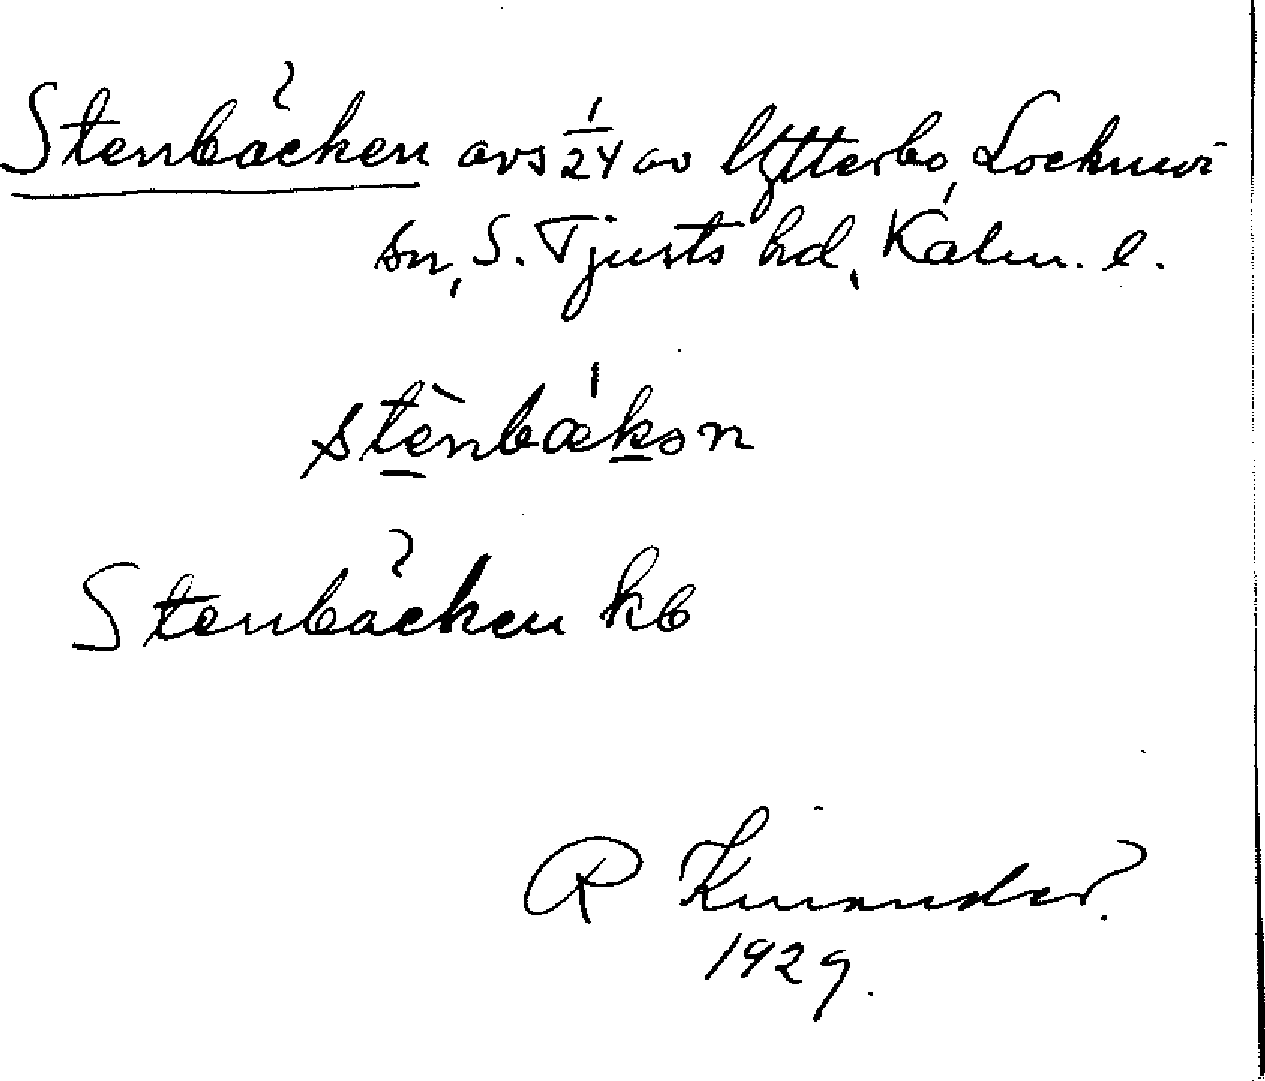 Stenbäcken avs 1/24 av Ytterbo, Locknevi
sn, S. Tjusts hd, Kalm. l.
stènbækən
Stenbäcken kb
R Kinander.
1929.